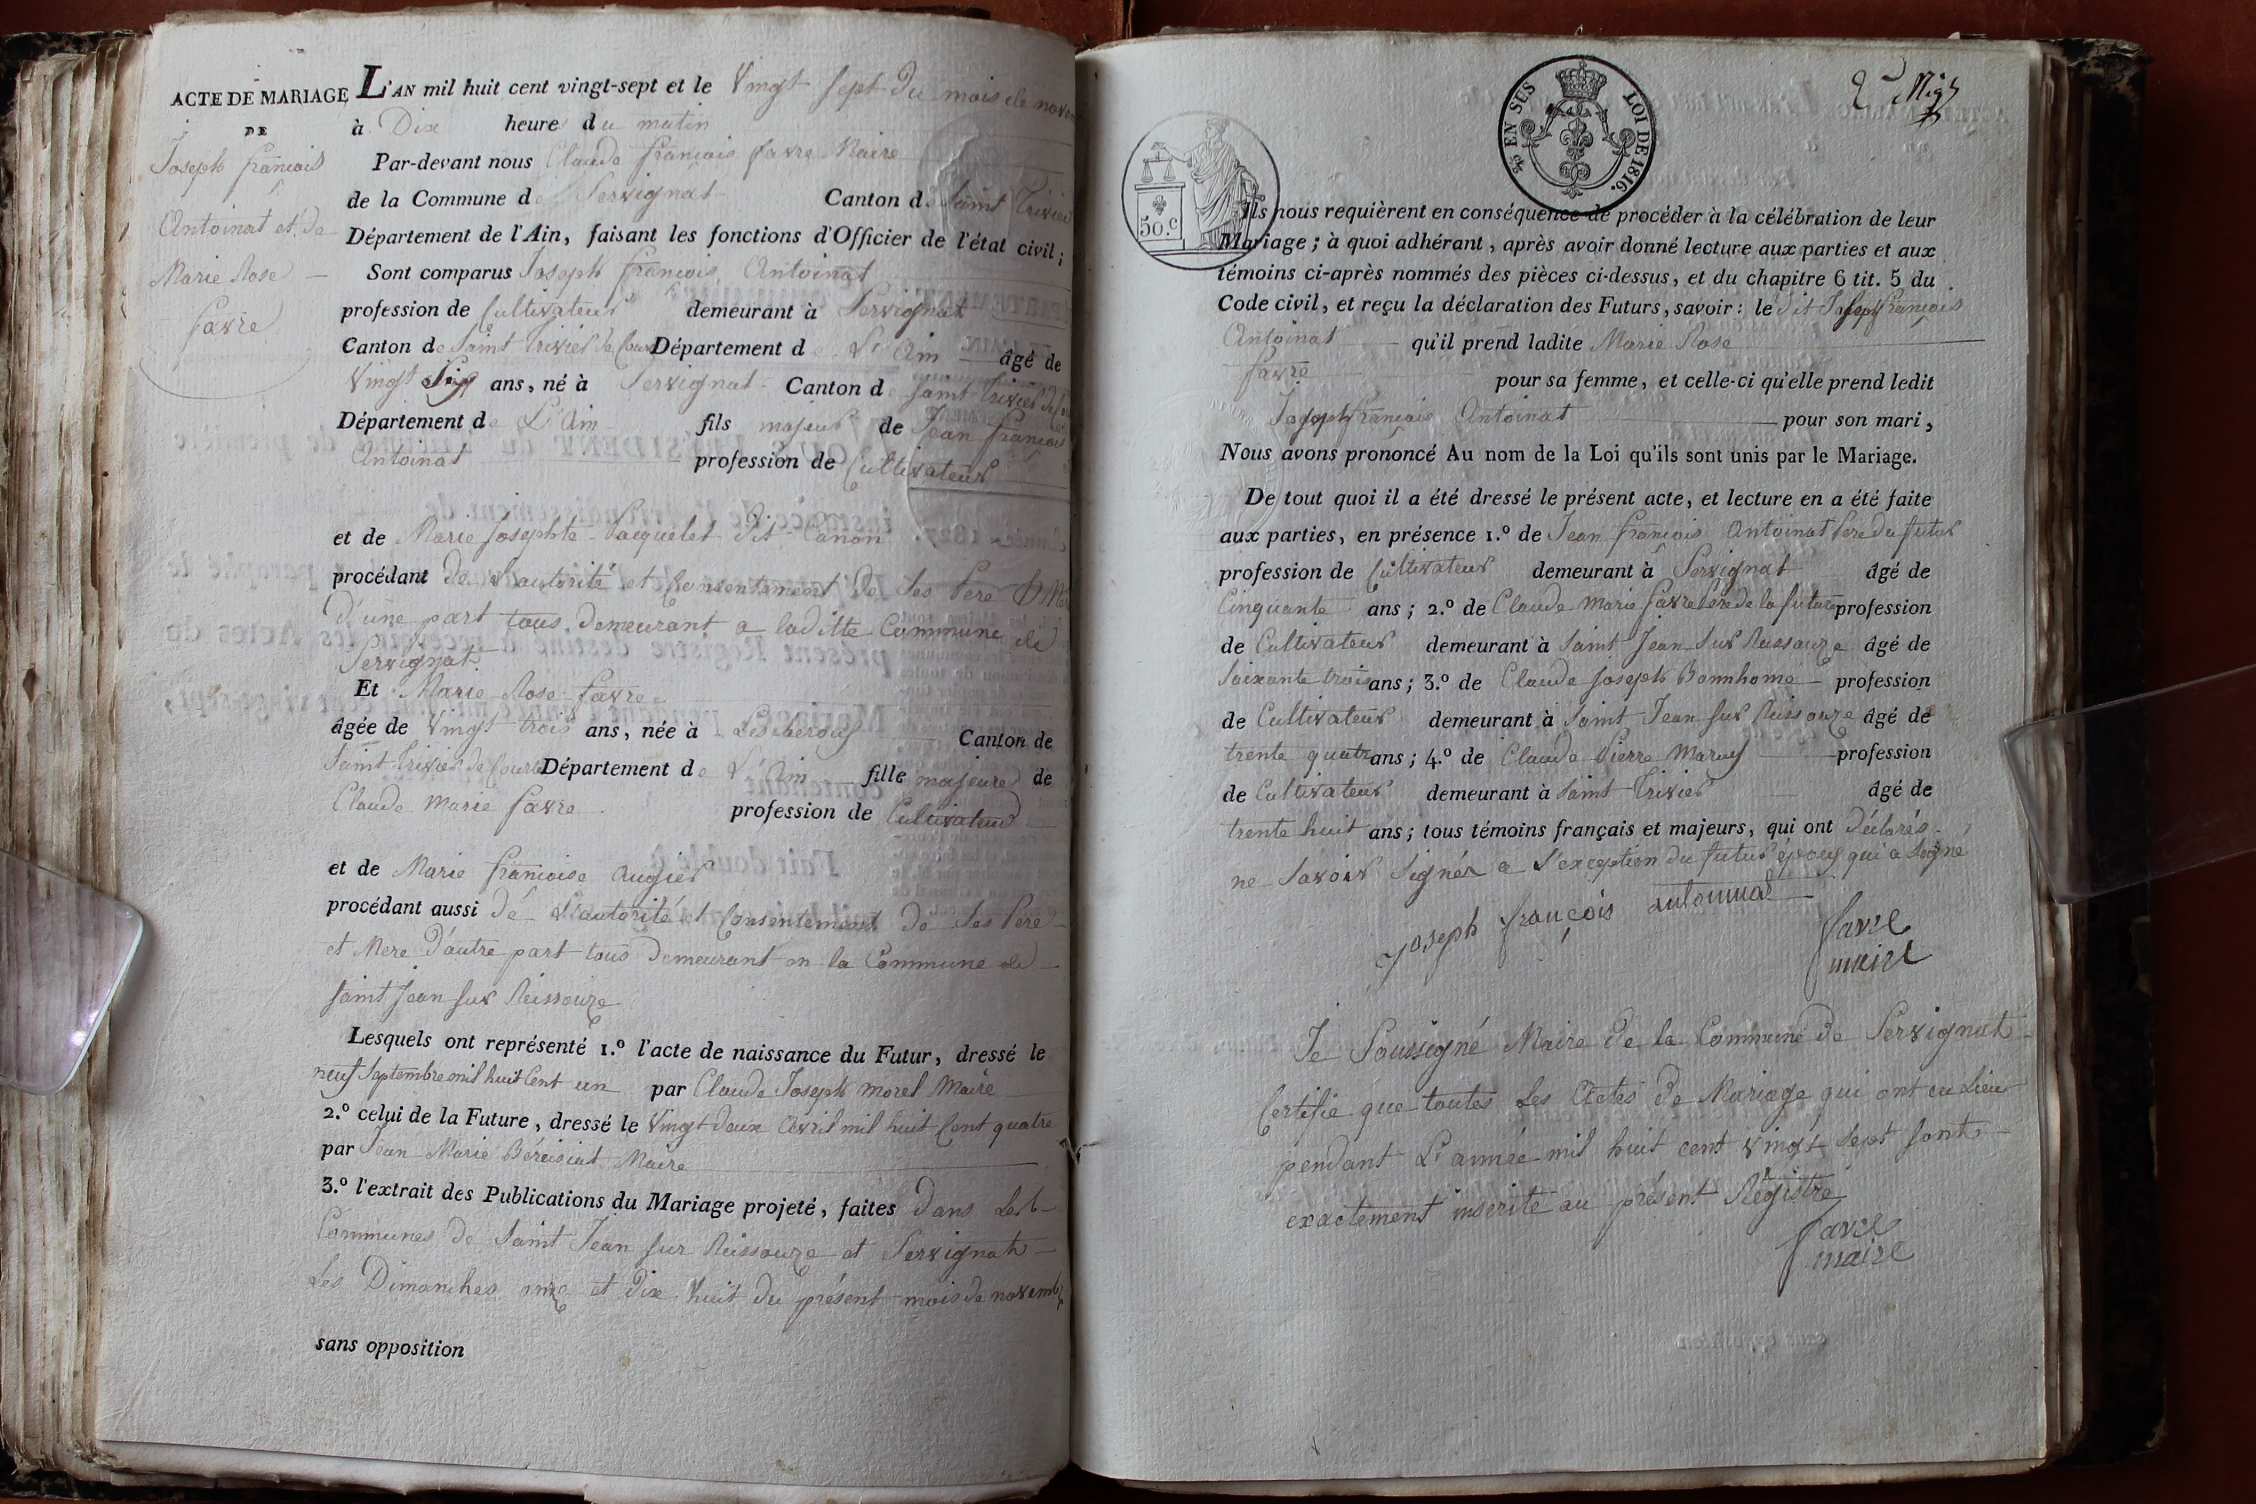 ACTE DE MARIAGE
DE
Joseph françois
Antoinat et de
Marie Rose
favre
L'AN mil huit cent vingt-sept et le Vingt sept du mois de novem
à Dix heures du matin
Par-devant nous Claude françois favre Maire
de la Commune de Servignat Canton de Saint Trivier
Département de l'Ain, faisant les fonctions d'Officier de l'état civil;
Sont comparus Joseph françois Antoinat
profession de Cultivateur demeurant à Servignat
Canton de Saint Trivier de Cour Département de L'Ain âgé de
Vingt Six ans, né à Servignat Canton de Saint Trivier de
Département de L'Ain fils majeur de Jean françois
Antoinat profession de Cultivateur
et de Marie Josephte Pacquelet Dit Canon
procédant de L'autorité et Consentement de Ses Pere & Mere
D'une part tous demeurant a laditte Commune de
Servignat
Et Marie Rose favre
âgée de Vingt trois ans, née à Lescheroux Canton de
Saint Trivier de Courte Département de L'Ain fille majeure de
Claude Marie favre profession de Cultivateur
et de Marie françoise Augier
procédant aussi de L'autorité et Consentement de Ses Pere
et Mere D'autre part tous Demeurant en la Commune de
Saint Jean Sur Reissouze
Lesquels ont représenté 1.º l'acte de naissance du Futur, dressé le
neuf Septembre mil huit Cent un par Claude Joseph Morel Maire
2.º celui de la Future, dressé le Vingt Deux Avril mil huit Cent quatre
par Jean Marie Béréisiat Maire
3.º l'extrait des Publications du Mariage projeté, faites Dans Les
Communes de Saint Jean Sur Reissouze et Servignat
Les Dimanches onze et dix huit du présent mois de novemb
sans opposition
EN SUS LOI DE 1816.
50.c
Ils nous requièrent en conséquence de procéder à la célébration de leur
Mariage; à quoi adhérant, après avoir donné lecture aux parties et aux
témoins ci-après nommés des pièces ci-dessus, et du chapitre 6 tit. 5 du
Code civil, et reçu la déclaration des Futurs, savoir: le dit Joseph françois
Antoinat qu'il prend ladite Marie Rose
favre pour sa femme, et celle-ci qu'elle prend ledit
Joseph françois Antoinat pour son mari,
Nous avons prononcé Au nom de la Loi qu'ils sont unis par le Mariage.
De tout quoi il a été dressé le présent acte, et lecture en a été faite
aux parties, en présence 1.º de Jean françois Antoinat Pere du futur
profession de Cultivateur demeurant à Servignat âgé de
Cinquante ans; 2.º de Claude Marie favre Pere de la future profession
de Cultivateur demeurant à Saint Jean Sur Reissouze âgé de
Soixante trois ans; 3.º de Claude Joseph Bonnhome profession
de Cultivateur demeurant à Saint Jean Sur Reissouze âgé de
trente quatre ans; 4.º de Claude Pierre profession
de Cultivateur demeurant à Saint Trivier âgé de
trente huit ans; tous témoins français et majeurs, qui ont déclarés
ne Savoir Signér a L'exception du futur époux qui a Signé
joseph françois antoinnat
favre
maire
Je Soussigné Maire de la Commune de Servignat
Certifie que toutes Les Actes de Mariage qui ont eu Lieu
pendant L'année mil huit cent vingt Sept sont
exactement inscrite au présent Régistre
favre
maire